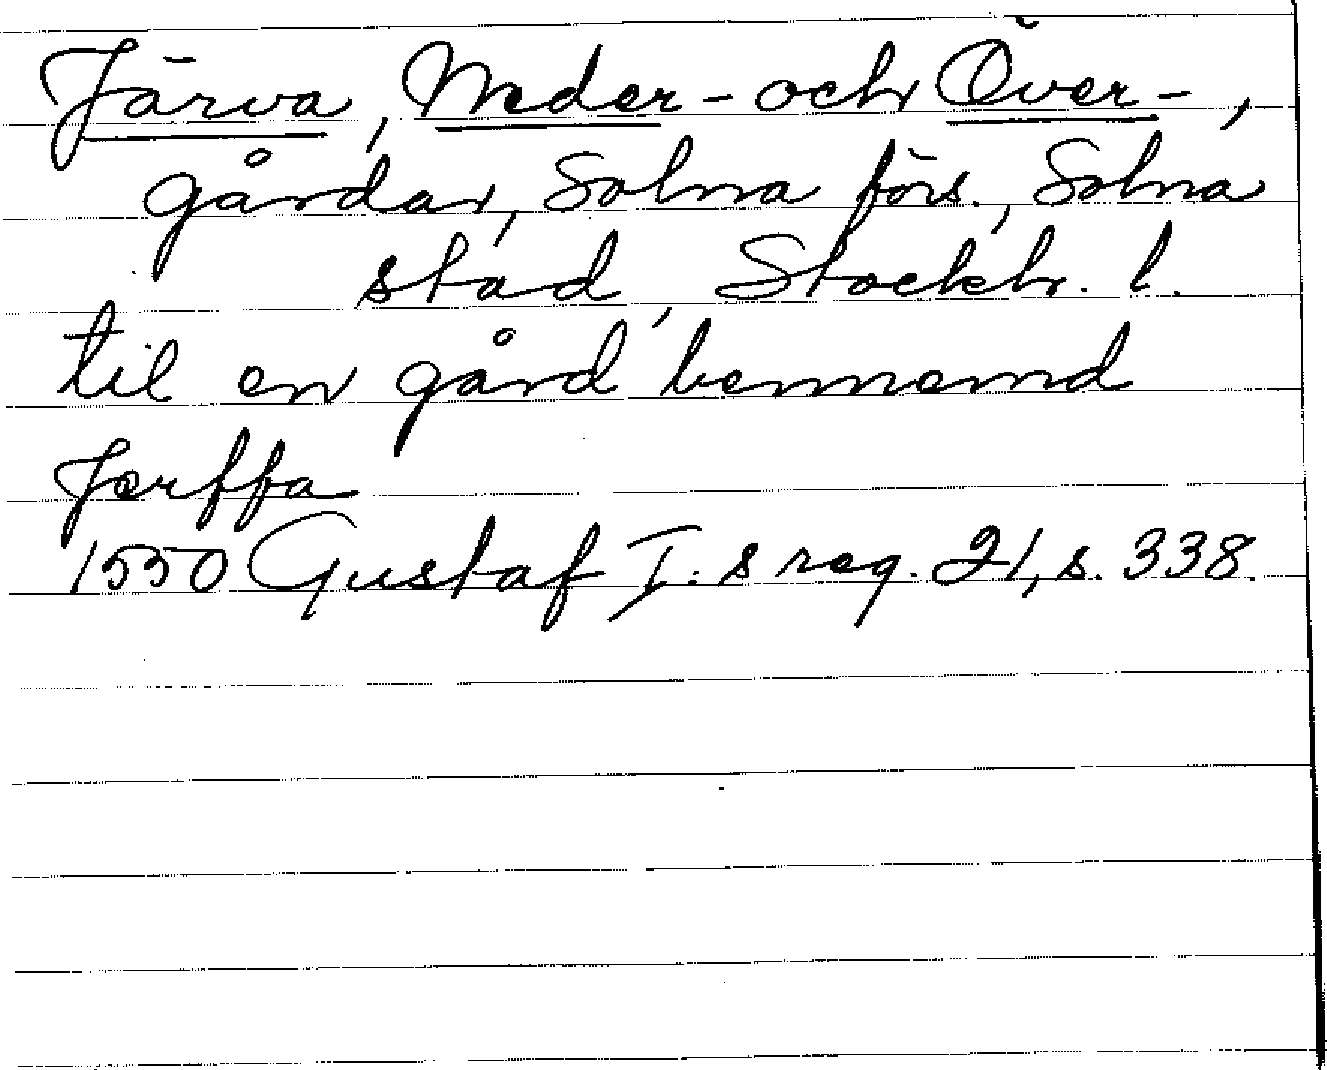 Järva, Neder- och Över-,
gårdar, Solna förs., Solna
stad, Stockh. l.
til en gård bennemnd
Jerffa
1550 Gustaf I:s reg. 21, s. 338.